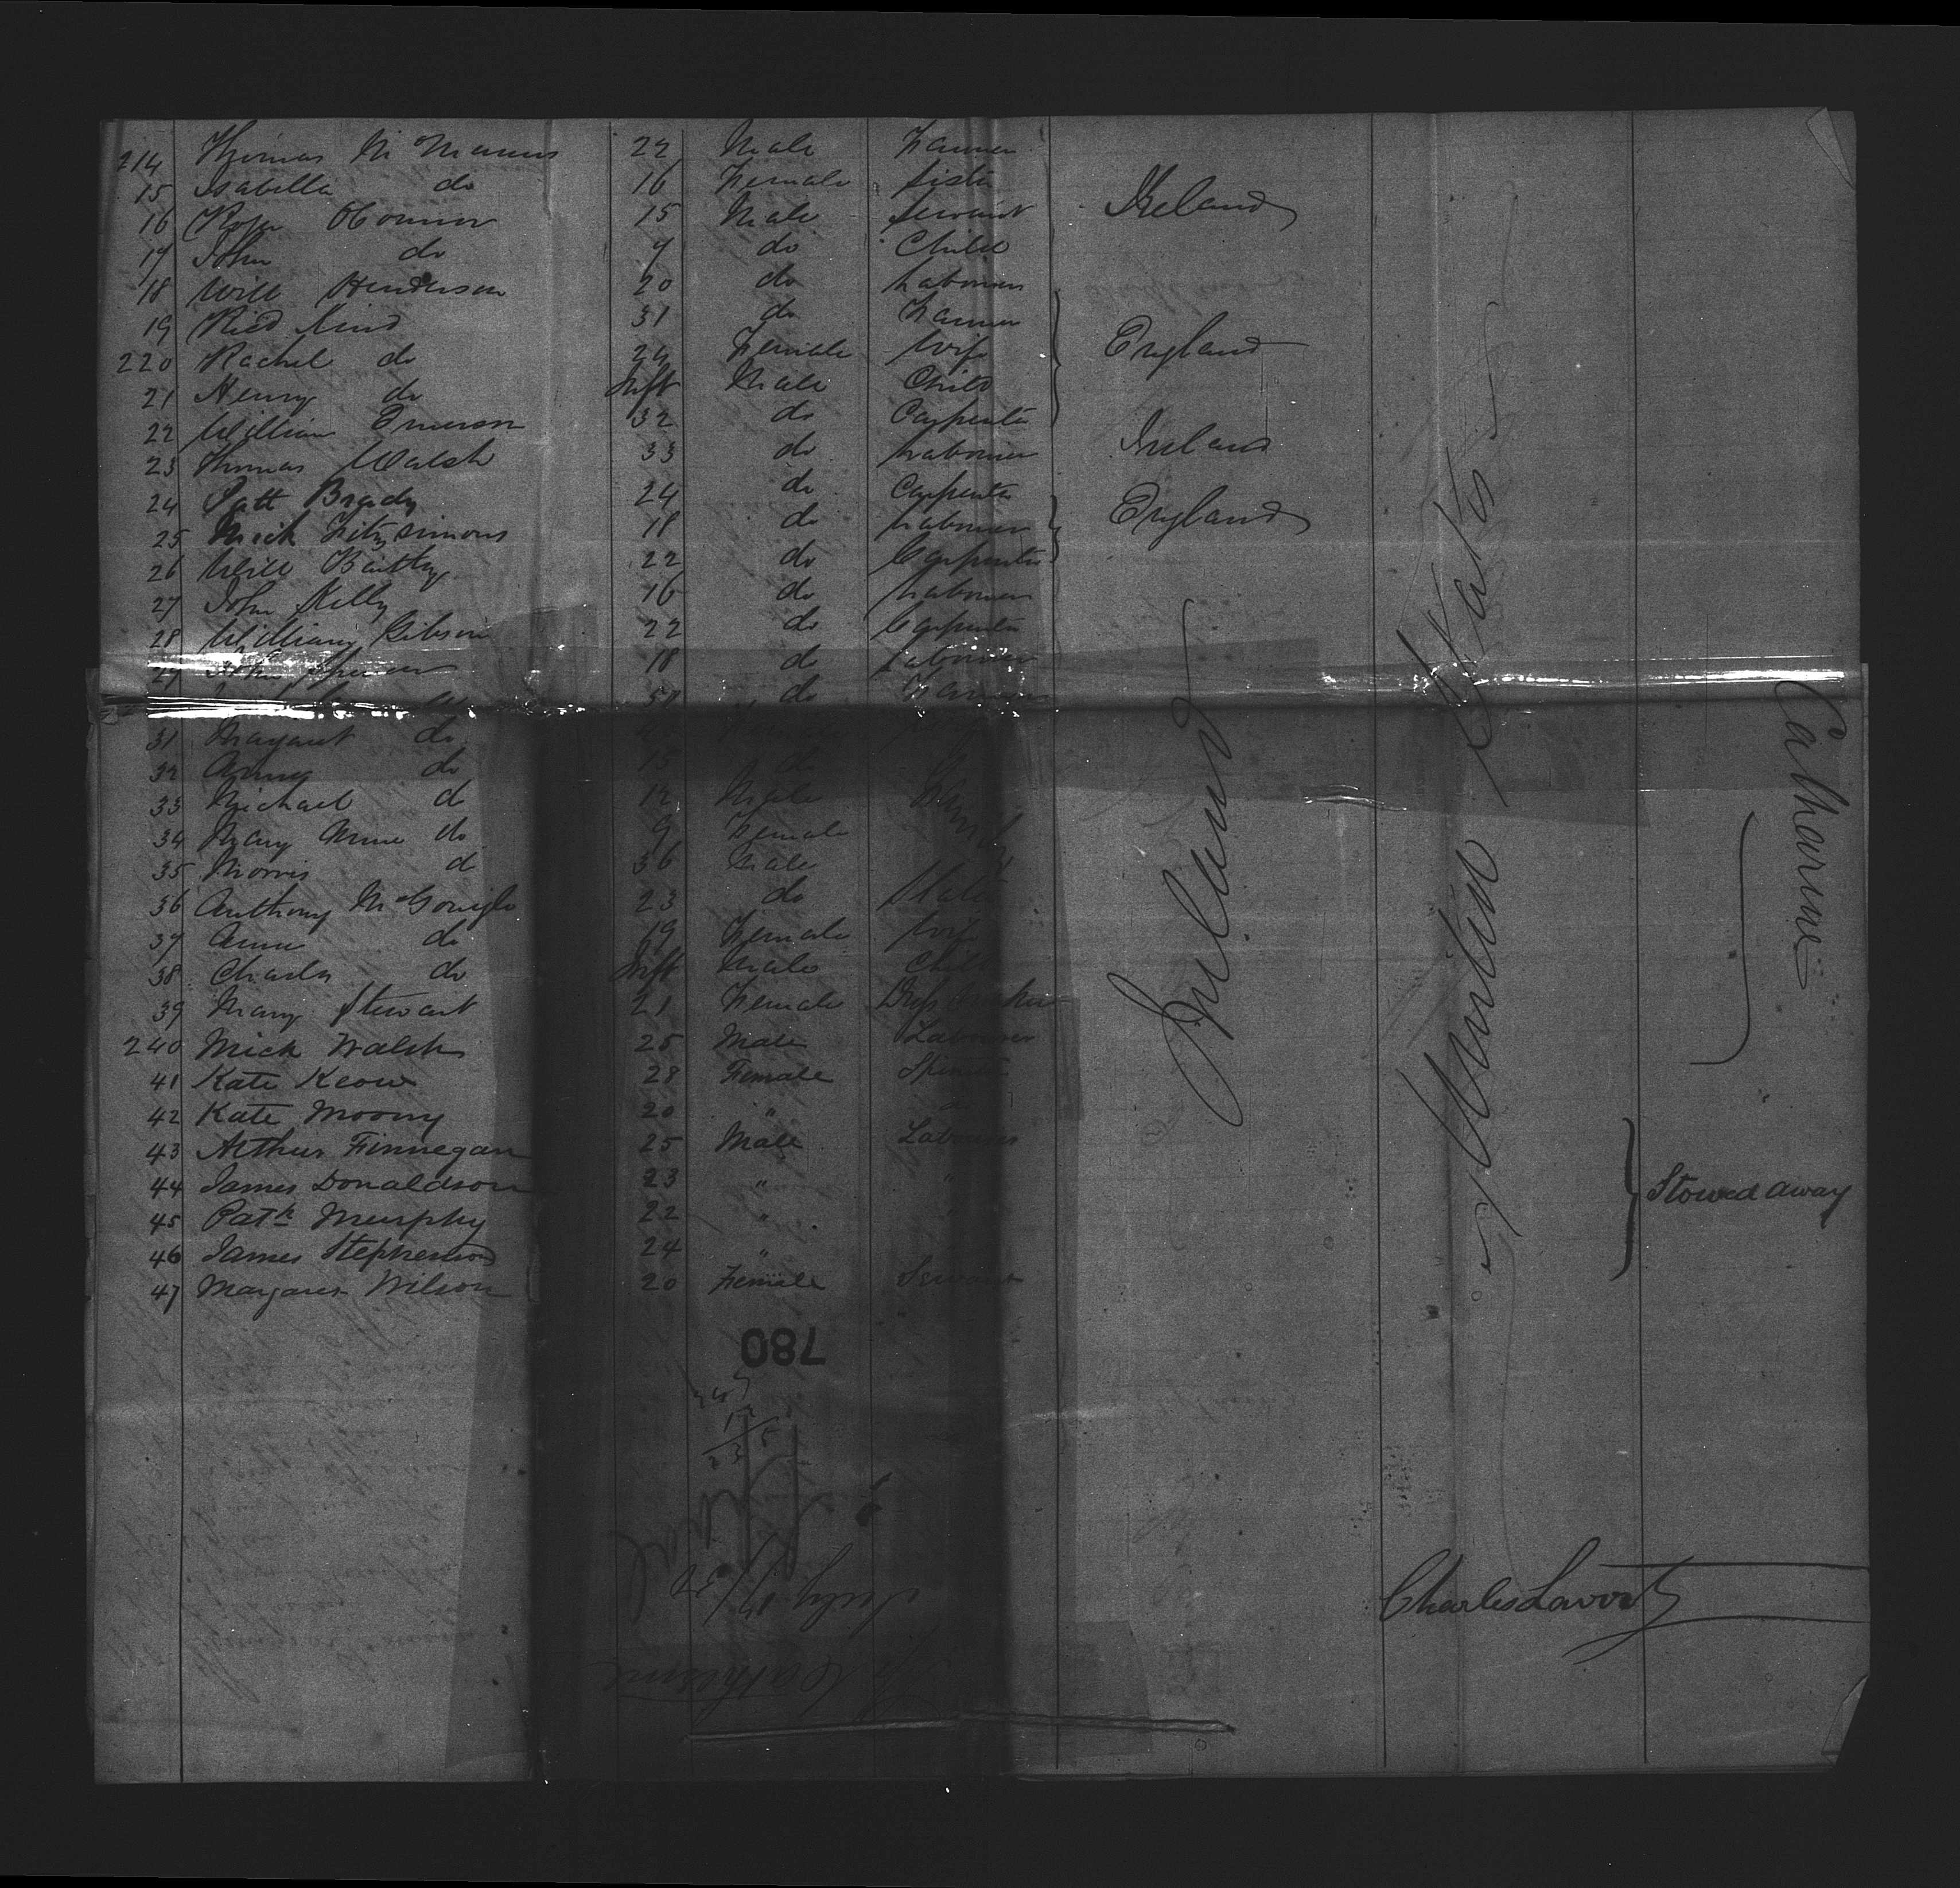 214 Thomas McManus 22 Male Farmer
15 Isabella do 16 Female Sister Ireland
16 Roger OConnor 15 Male Servant
17 John do 7 do Child
18 Will Henderson 20 do Labourer
19 Ricd 31 do Farmer
220 Rachel do Female Wife England
21 Henry do Inft Male Child
22 William Emerson 32 do Carpenter
23 Thomas Walsh 33 do Labourer Ireland
24 Patt Brady 24 do Carpenter
25 Mick Fitzsimons 18 do Labourer England
26 Will 22 do Carpenter
27 John Kelly 16 do Labourer
28 William Gibson 22 do Carpenter
29 John 18 do Labourer
do Farmer
31 Margaret do
32 Anny do 15 do
33 Michael do 12 Male
34 Mary Anne do 9 Female
35 Morris do 36 Male
36 Anthony McGonigle 23 do Slater
37 Anne do 19 Female Wife
38 Charles do Inft Male Child
39 Mary Stewart 21 Female Dress Maker
240 Mick Walsh 25 Male Labourer
41 Kate Keown 28 Female Spinster
42 Kate Moony 20 "
43 Arthur Finnegan 25 Male Labourer
44 James Donaldson 23 " "
45 Patk Murphy 22 " "
46 James Stephenson 24 "
47 Margaret Wilson 20 Female Servant
Ireland
United States
Catharine
Stowed away
780
July
Catharine
Charles